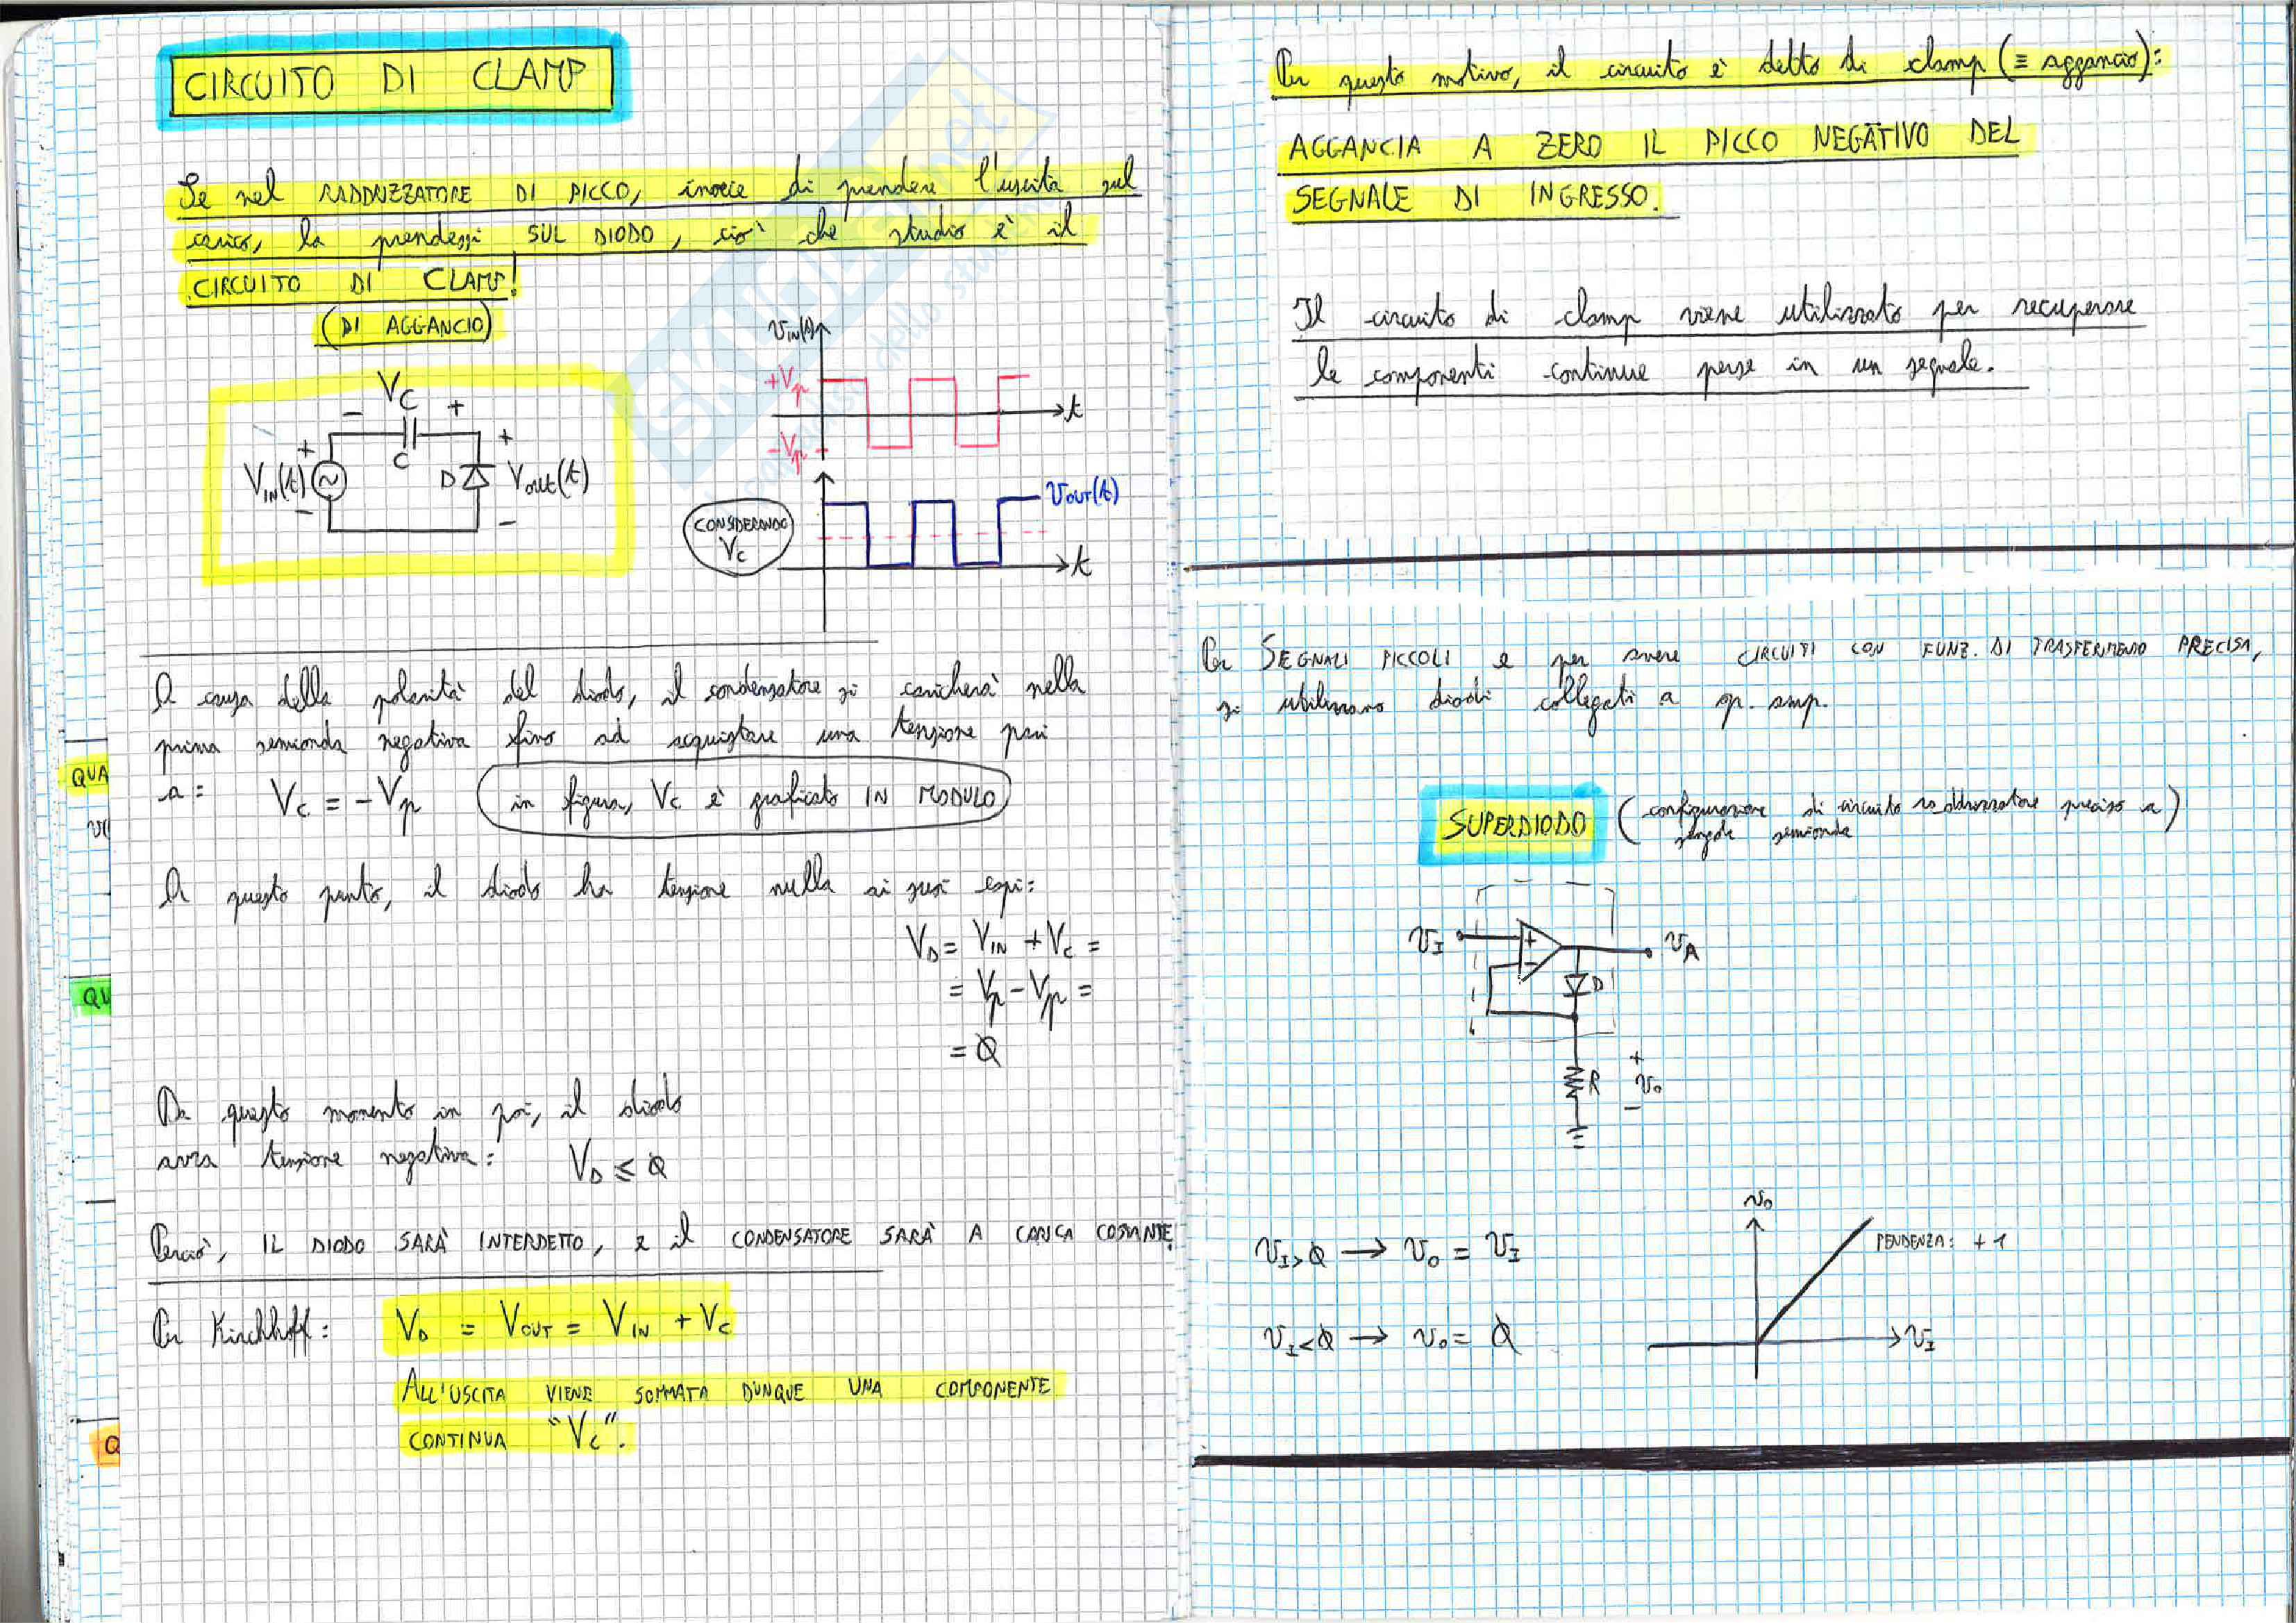 CIRCUITO DI CLAMP
Se nel RADDRIZZATORE DI PICCO, invece di prendere l'uscita sul
carico, la prendessi SUL DIODO, ciò che studio è il
CIRCUITO DI CLAMP!
(DI AGGANCIO)
VC
- +
C
+
VIN(t)
-
D
+
Vout(t)
-
vIN(t)
+Vp
-Vp
t
CONSIDERANDO
VC
vOUT(t)
t
A causa della polarità del diodo, il condensatore si caricherà nella
prima semionda negativa fino ad acquistare una tensione pari
a: VC = -Vp (in figura, VC è graficato IN MODULO)
A questo punto, il diodo ha tensione nulla ai suoi capi:
VD = VIN + VC =
= Vp - Vp =
= Ø
Da questo momento in poi, il diodo
avrà tensione negativa: VD ≤ Ø
Perciò, IL DIODO SARÀ INTERDETTO, e il CONDENSATORE SARÀ A CARICA COSTANTE
Per Kirchhoff: VD = VOUT = VIN + VC
ALL'USCITA VIENE SOMMATA DUNQUE UNA COMPONENTE
CONTINUA "VC".
QUA
V(
QU
Q
SKUOLA.net
Per questo motivo, il circuito è detto di clamp (≡ aggancio):
AGGANCIA A ZERO IL PICCO NEGATIVO DEL
SEGNALE DI INGRESSO.
Il circuito di clamp viene utilizzato per recuperare
le componenti continue perse in un segnale.
Per SEGNALI PICCOLI e per avere CIRCUITI CON FUNZ. DI TRASFERIMENTO PRECISA,
si utilizzano diodi collegati a op. amp.
SUPERDIODO (configurazione di circuito raddrizzatore preciso a
singola semionda)
vI
+
-
vA
D
R
+
vo
-
vI > Ø → vo = vI
vI < Ø → vo = Ø
vo
PENDENZA: +1
vI